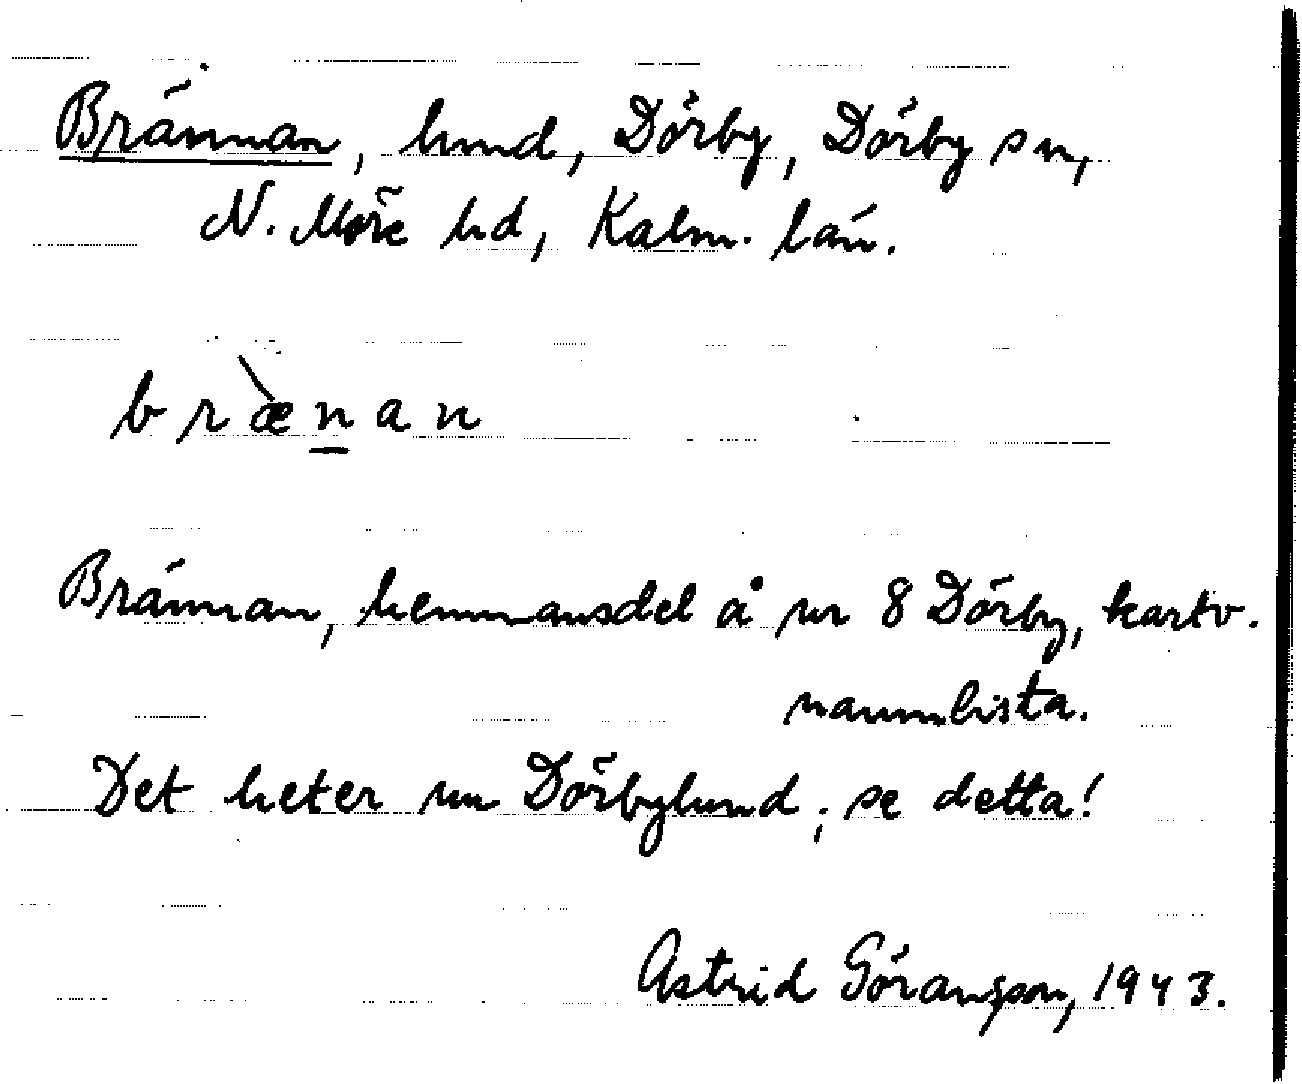 Brännan, lund, Dörby, Dörby sn,
N. Möre hd, Kalm. län.
bræ̀n̲an
Brännan, hemmansdel å nr 8 Dörby, kartv.
namnlista.
Det heter nu Dörbylund, se detta!
Astrid Göransson, 1943.